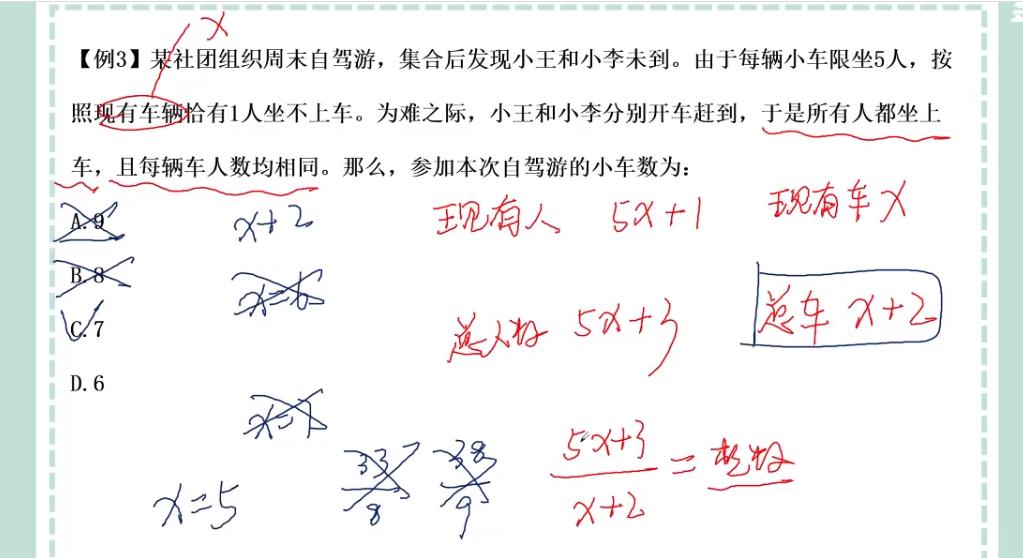 x
【例3】某社团组织周末自驾游，集合后发现小王和小李未到。由于每辆小车限坐5人，按
照现有车辆恰有1人坐不上车。为难之际，小王和小李分别开车赶到，于是所有人都坐上
车，且每辆车人数均相同。那么，参加本次自驾游的小车数为：
A.9
x+2
现有人 5x+1
现有车 x
B.8
x=6
C.7
总人数 5x+3
总车 x+2
D.6
x=7
33/8
38/9
5x+3/x+2 = 整数
x=5